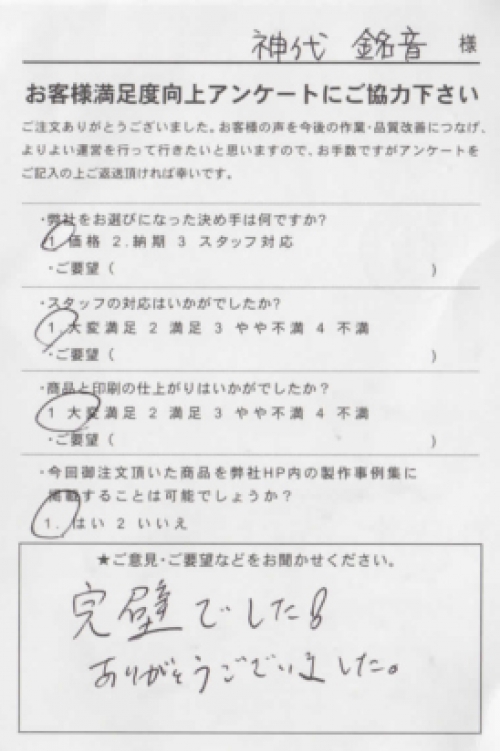 神代 銘音 様
お客様満足度向上アンケートにご協力下さい
ご注文ありがとうございました。お客様の声を今後の作業・品質改善につなげ、
よりよい運営を行って行きたいと思いますので、お手数ですがアンケートを
ご記入の上ご返送頂ければ幸いです。
・弊社をお選びになった決め手は何ですか?
1 価格 2.納期 3 スタッフ対応
・ご要望( )
・スタッフの対応はいかがでしたか?
1.大変満足 2 満足 3 やや不満 4 不満
・ご要望( )
・商品と印刷の仕上がりはいかがでしたか?
1 大変満足 2 満足 3 やや不満 4 不満
・ご要望( )
・今回御注文頂いた商品を弊社HP内の製作事例集に
掲載することは可能でしょうか?
1. はい 2 いいえ
★ご意見・ご要望などをお聞かせください。
完璧でした!
ありがとうございました。